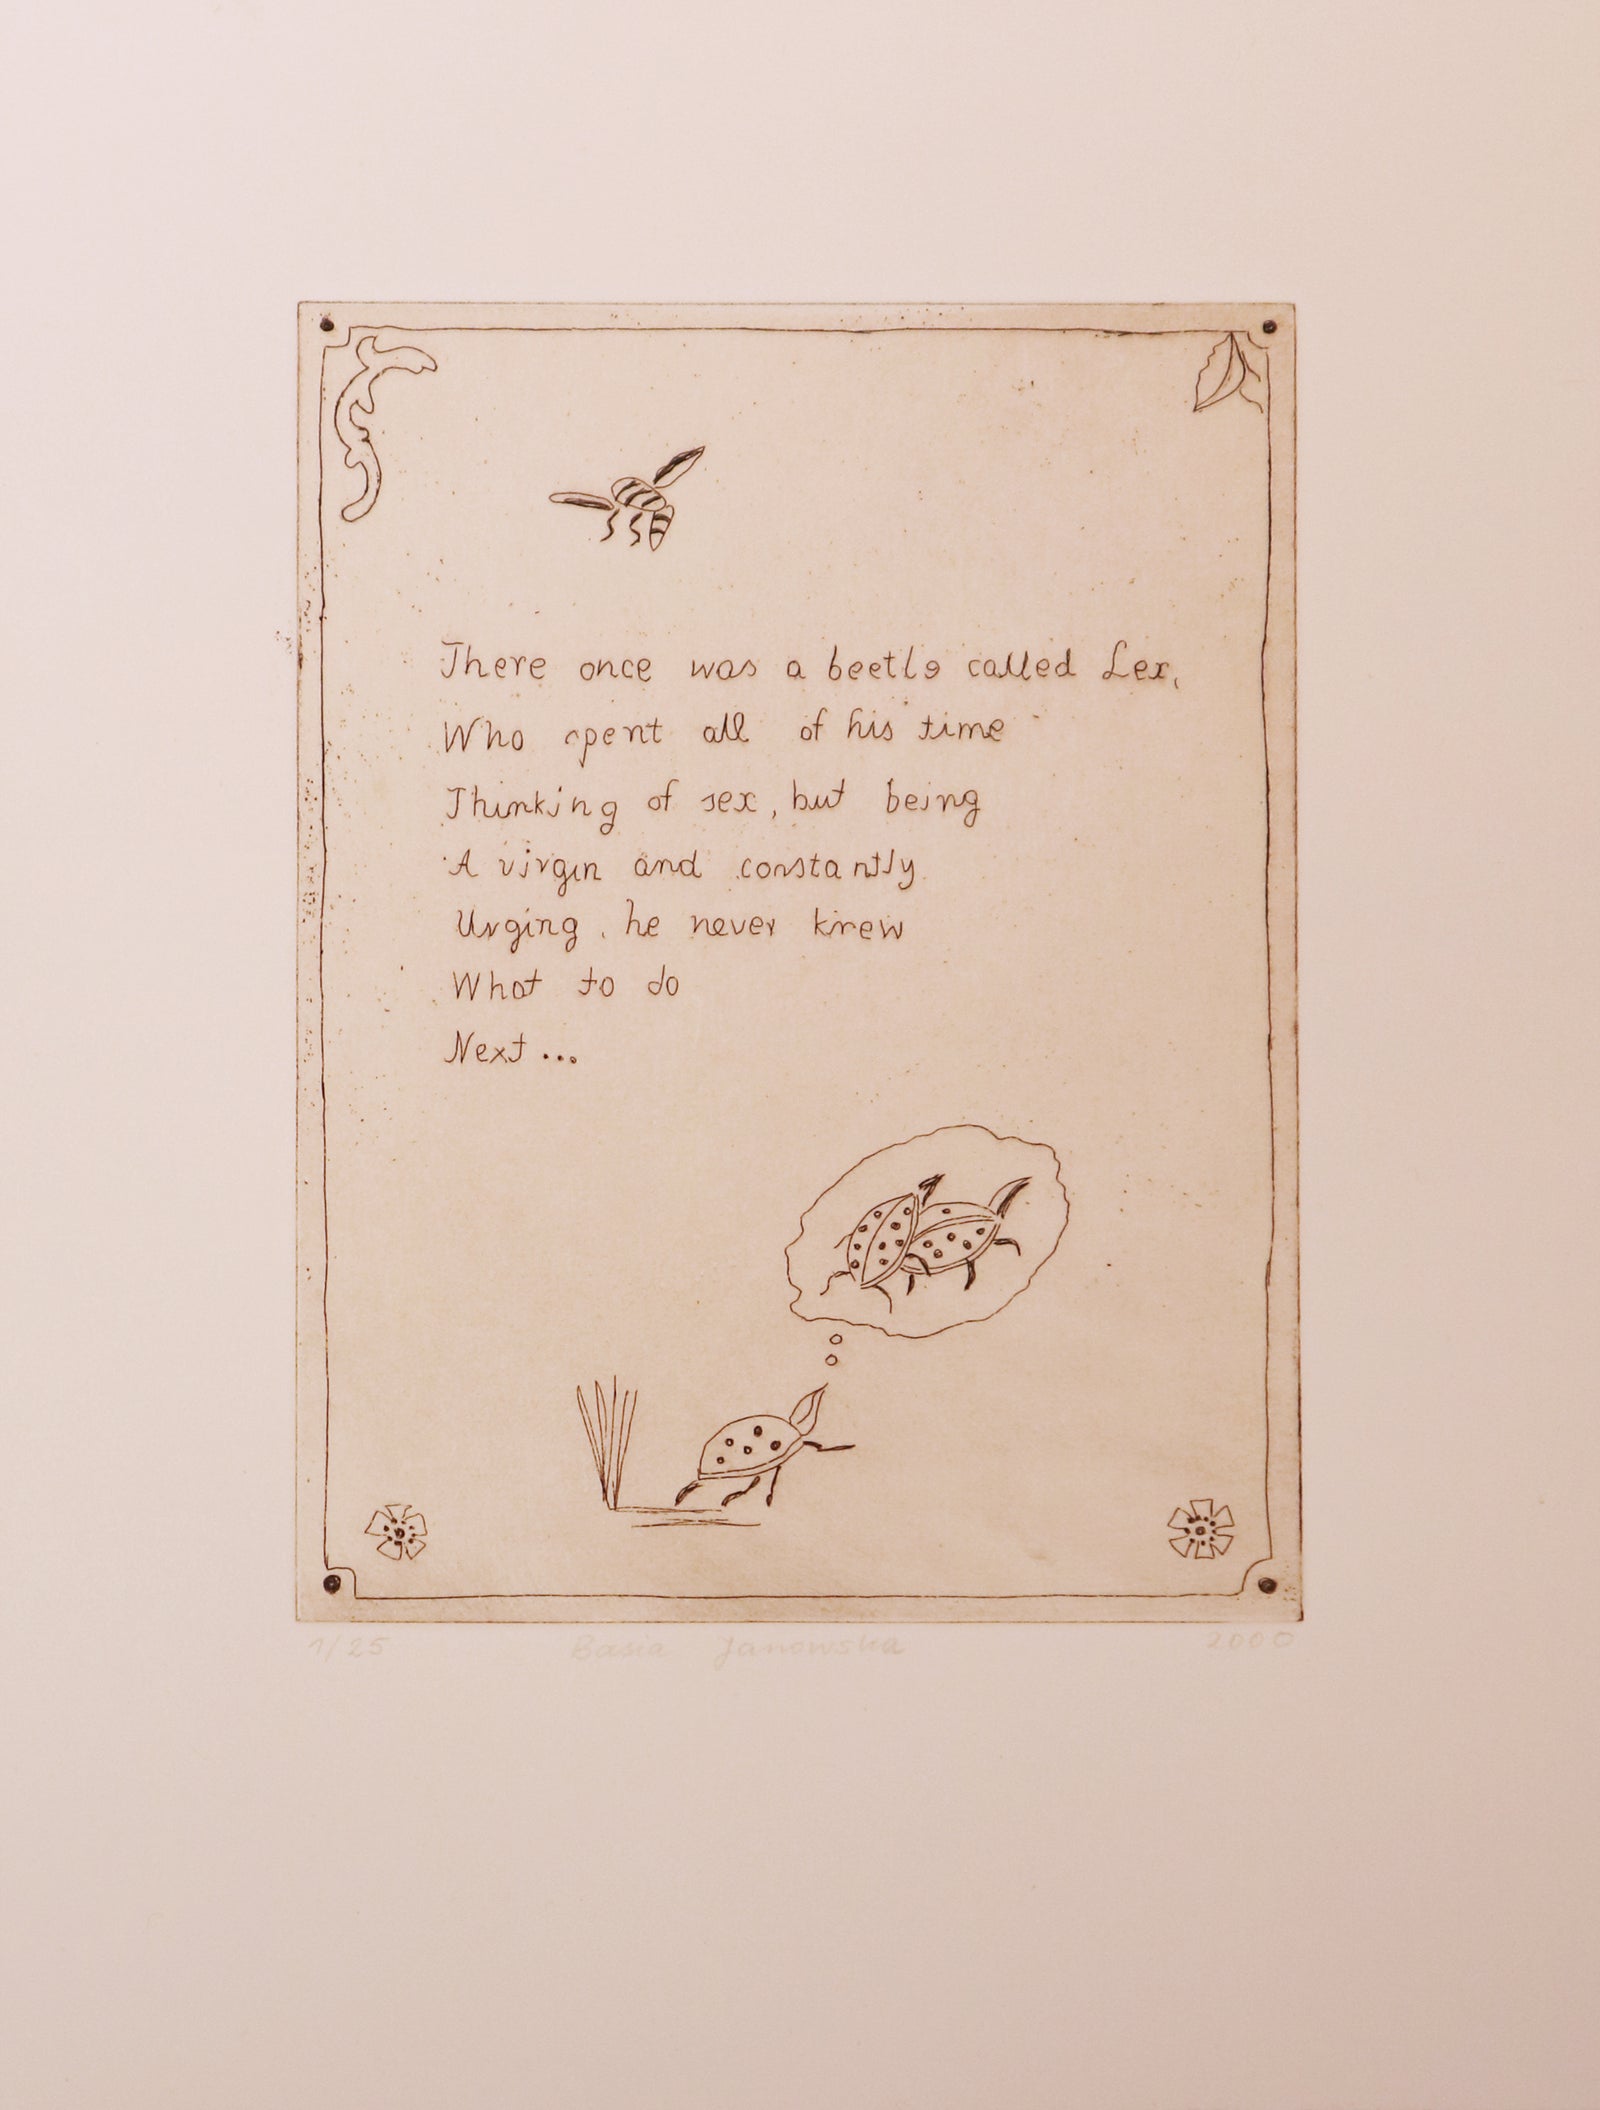 There once was a beetle called Lex,
Who spent all of his time
Thinking of sex, but being
A virgin and constantly
Urging, he never knew
What to do
Next...
1/25 Basia Janowska 2000